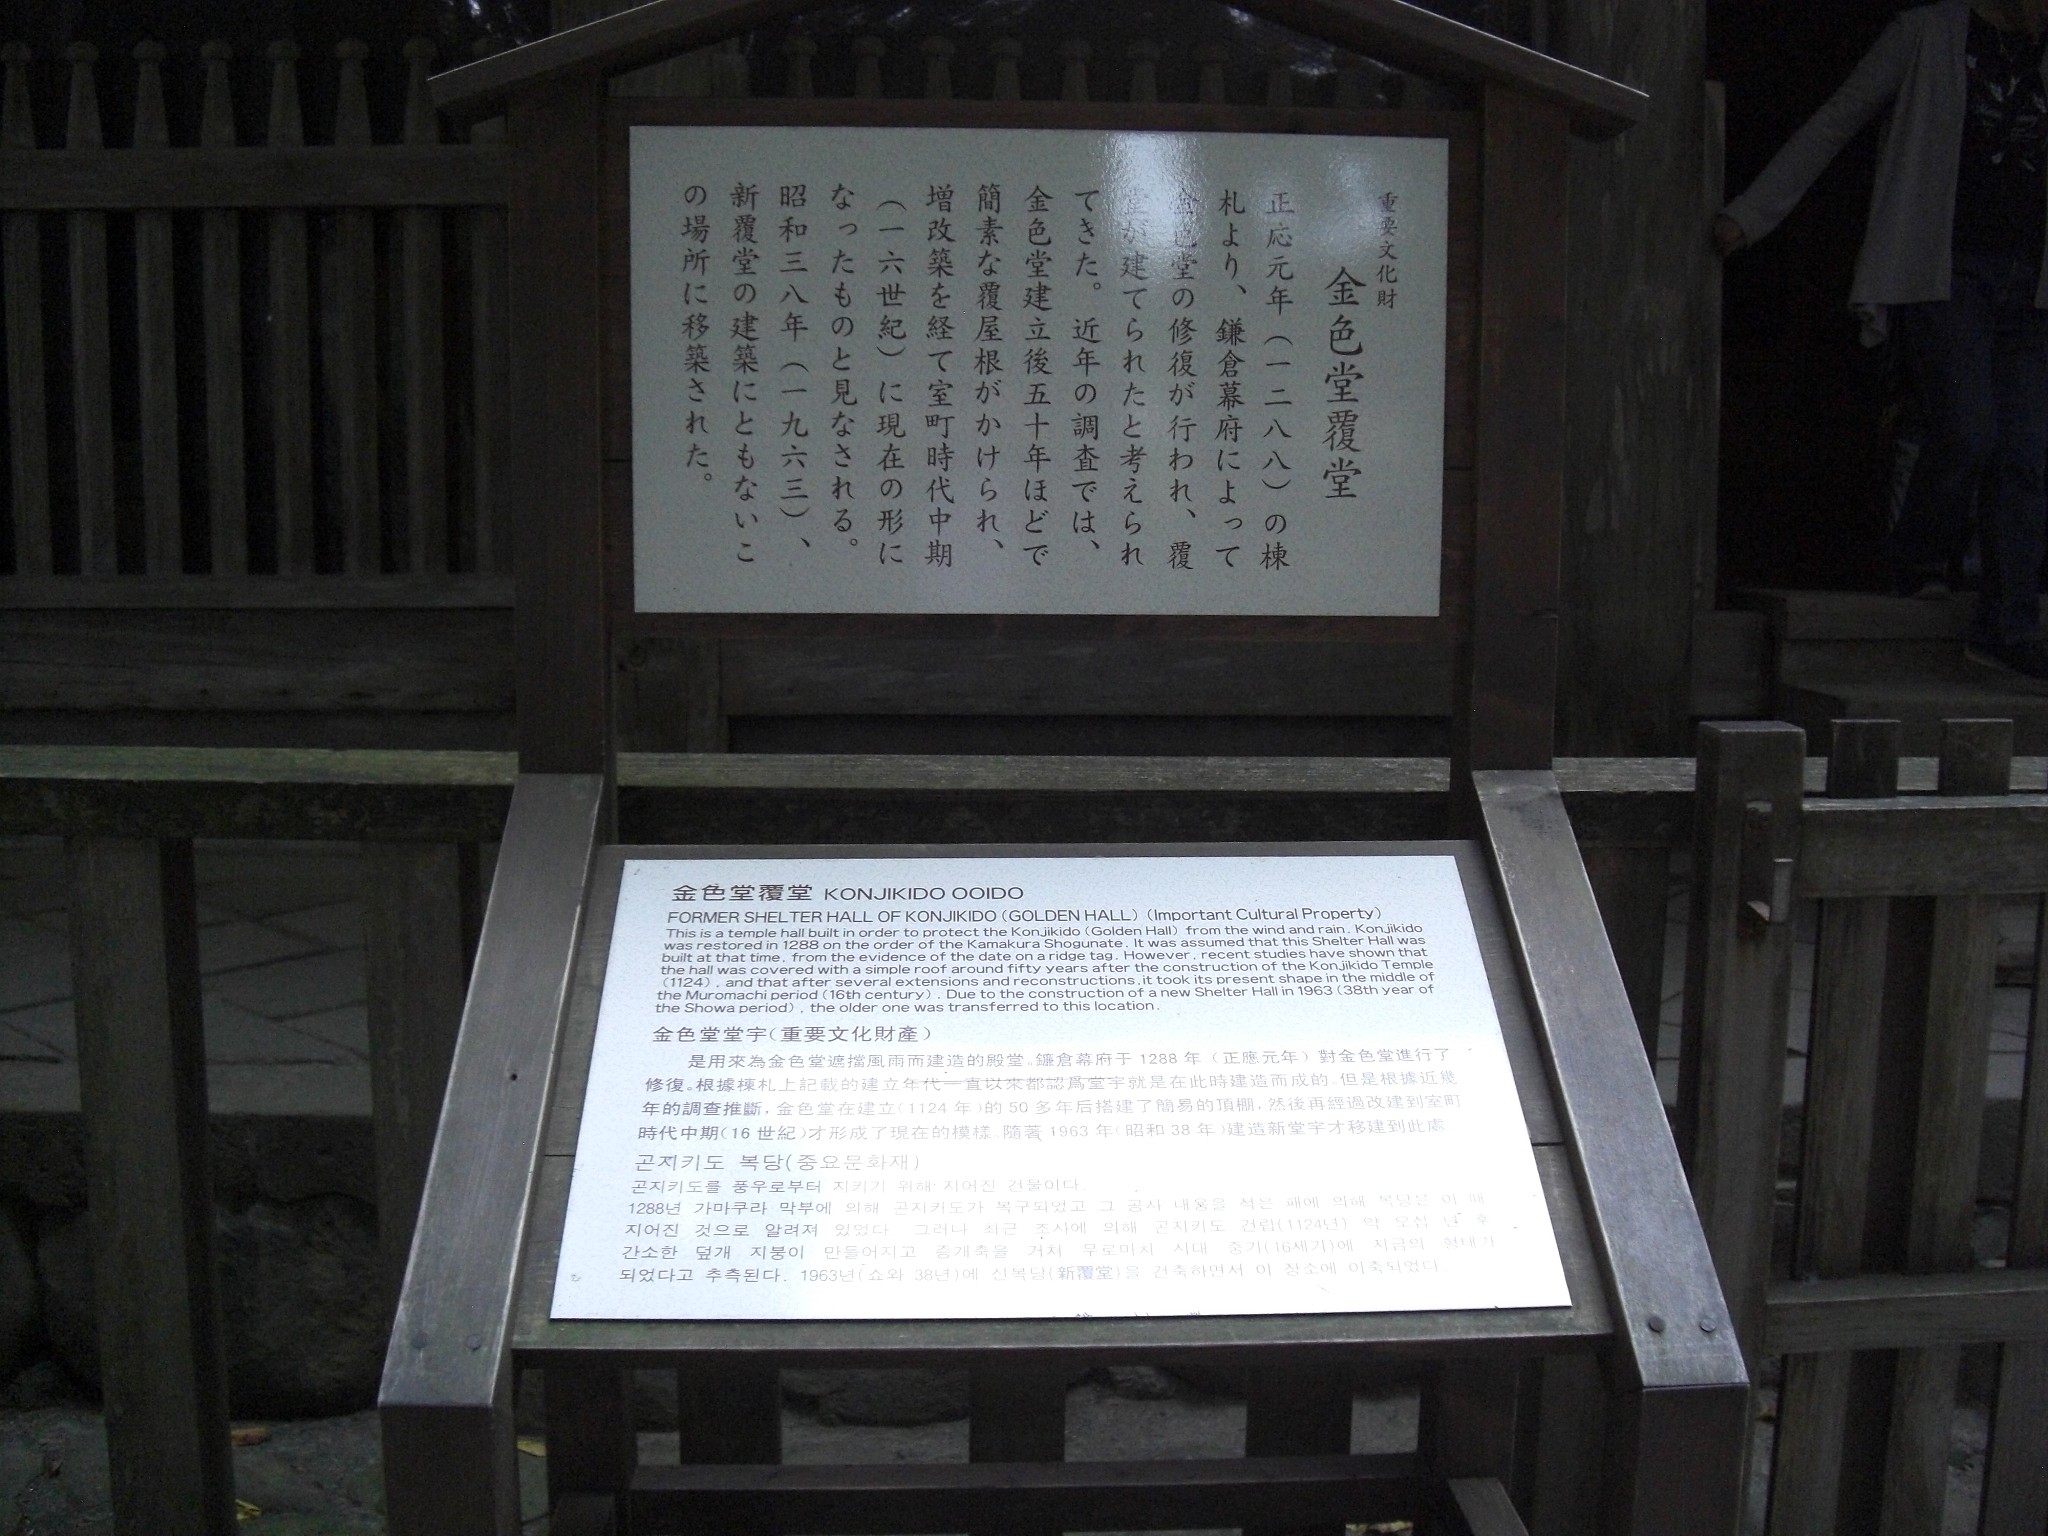 重要文化財
金色堂覆堂
正応元年（一二八八）の棟
札より、鎌倉幕府によって
金色堂の修復が行われ、覆
堂が建てられたと考えられ
てきた。近年の調査では、
金色堂建立後五十年ほどで
簡素な覆屋根がかけられ、
増改築を経て室町時代中期
（一六世紀）に現在の形に
なったものと見なされる。
昭和三八年（一九六三）、
新覆堂の建築にともないこ
の場所に移築された。
金色堂覆堂 KONJIKIDO OOIDO
FORMER SHELTER HALL OF KONJIKIDO (GOLDEN HALL) (Important Cultural Property)
This is a temple hall built in order to protect the Konjikido (Golden Hall) from the wind and rain. Konjikido
was restored in 1288 on the order of the Kamakura Shogunate. It was assumed that this Shelter Hall was
built at that time, from the evidence of the date on a ridge tag. However, recent studies have shown that
the hall was covered with a simple roof around fifty years after the construction of the Konjikido Temple
(1124), and that after several extensions and reconstructions, it took its present shape in the middle of
the Muromachi period (16th century). Due to the construction of a new Shelter Hall in 1963 (38th year of
the Showa period), the older one was transferred to this location.
金色堂堂宇(重要文化財產)
是用來為金色堂遮擋風雨而建造的殿堂。鐮倉幕府于 1288 年 (正應元年) 對金色堂進行了
修復。根據棟札上記載的建立年代一直以來都認爲堂宇就是在此時建造而成的。但是根據近幾
年的調查推斷，金色堂在建立(1124 年)的 50 多年后搭建了簡易的頂棚，然後再經過改建到室町
時代中期(16 世紀)才形成了現在的模樣。隨著 1963 年(昭和 38 年)建造新堂宇才移建到此處
곤지키도 복당(중요문화재)
곤지키도를 풍우로부터 지키기 위해 지어진 건물이다.
1288년 가마쿠라 막부에 의해 곤지키도가 복구되었고 그 공사 내용을 적은 패에 의해 복당은 이 때
지어진 것으로 알려져 있었다. 그러나 최근 조사에 의해 곤지키도 건립(1124년) 약 오십 년 후
간소한 덮개 지붕이 만들어지고 증개축을 거쳐 무로마치 시대 중기(16세기)에 지금의 형태가
되었다고 추측된다. 1963년(쇼와 38년)에 신복당(新覆堂)을 건축하면서 이 장소에 이축되었다.